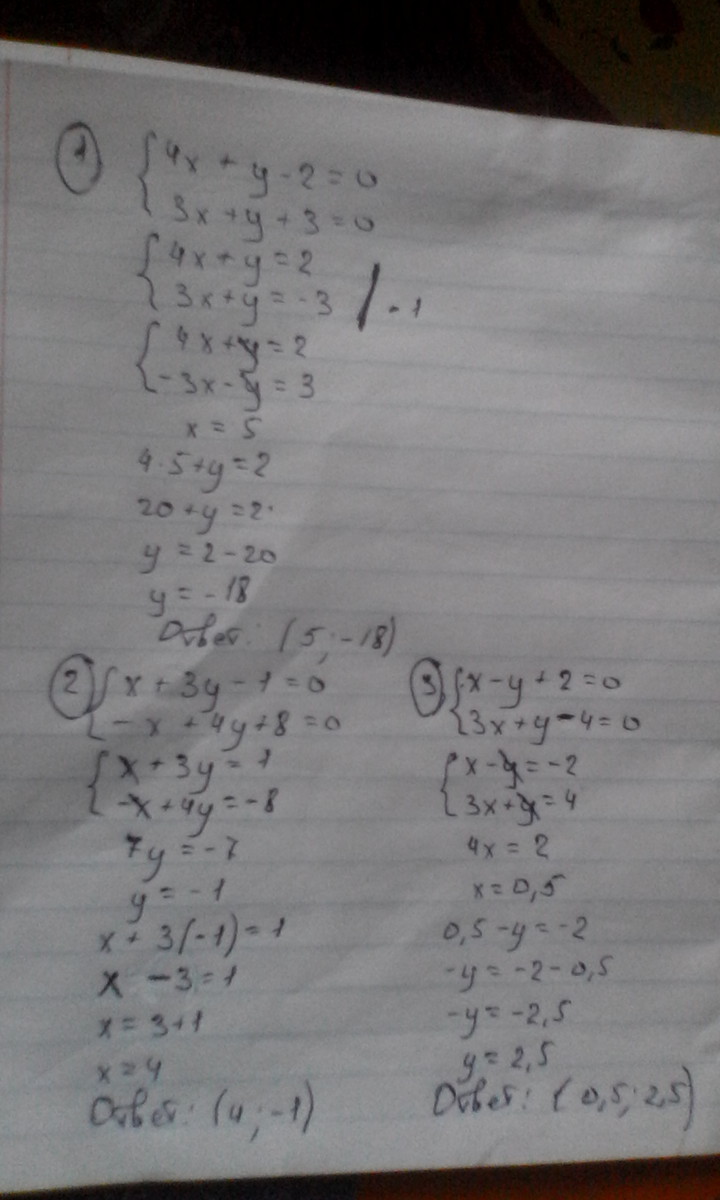 1 {4x + y - 2 = 0
3x + y + 3 = 0
{4x + y = 2
3x + y = -3 / -1
{4x + y = 2
-3x - y = 3
x = 5
4·5 + y = 2
20 + y = 2
y = 2 - 20
y = -18
Ответ: (5; -18)
2 {x + 3y - 1 = 0
-x + 4y + 8 = 0
{x + 3y = 1
-x + 4y = -8
7y = -7
y = -1
x + 3(-1) = 1
x - 3 = 1
x = 3 + 1
x = 4
Ответ: (4; -1)
3 {x - y + 2 = 0
3x + y - 4 = 0
{x - y = -2
3x + y = 4
4x = 2
x = 0,5
0,5 - y = -2
-y = -2 - 0,5
-y = -2,5
y = 2,5
Ответ: (0,5; 2,5)